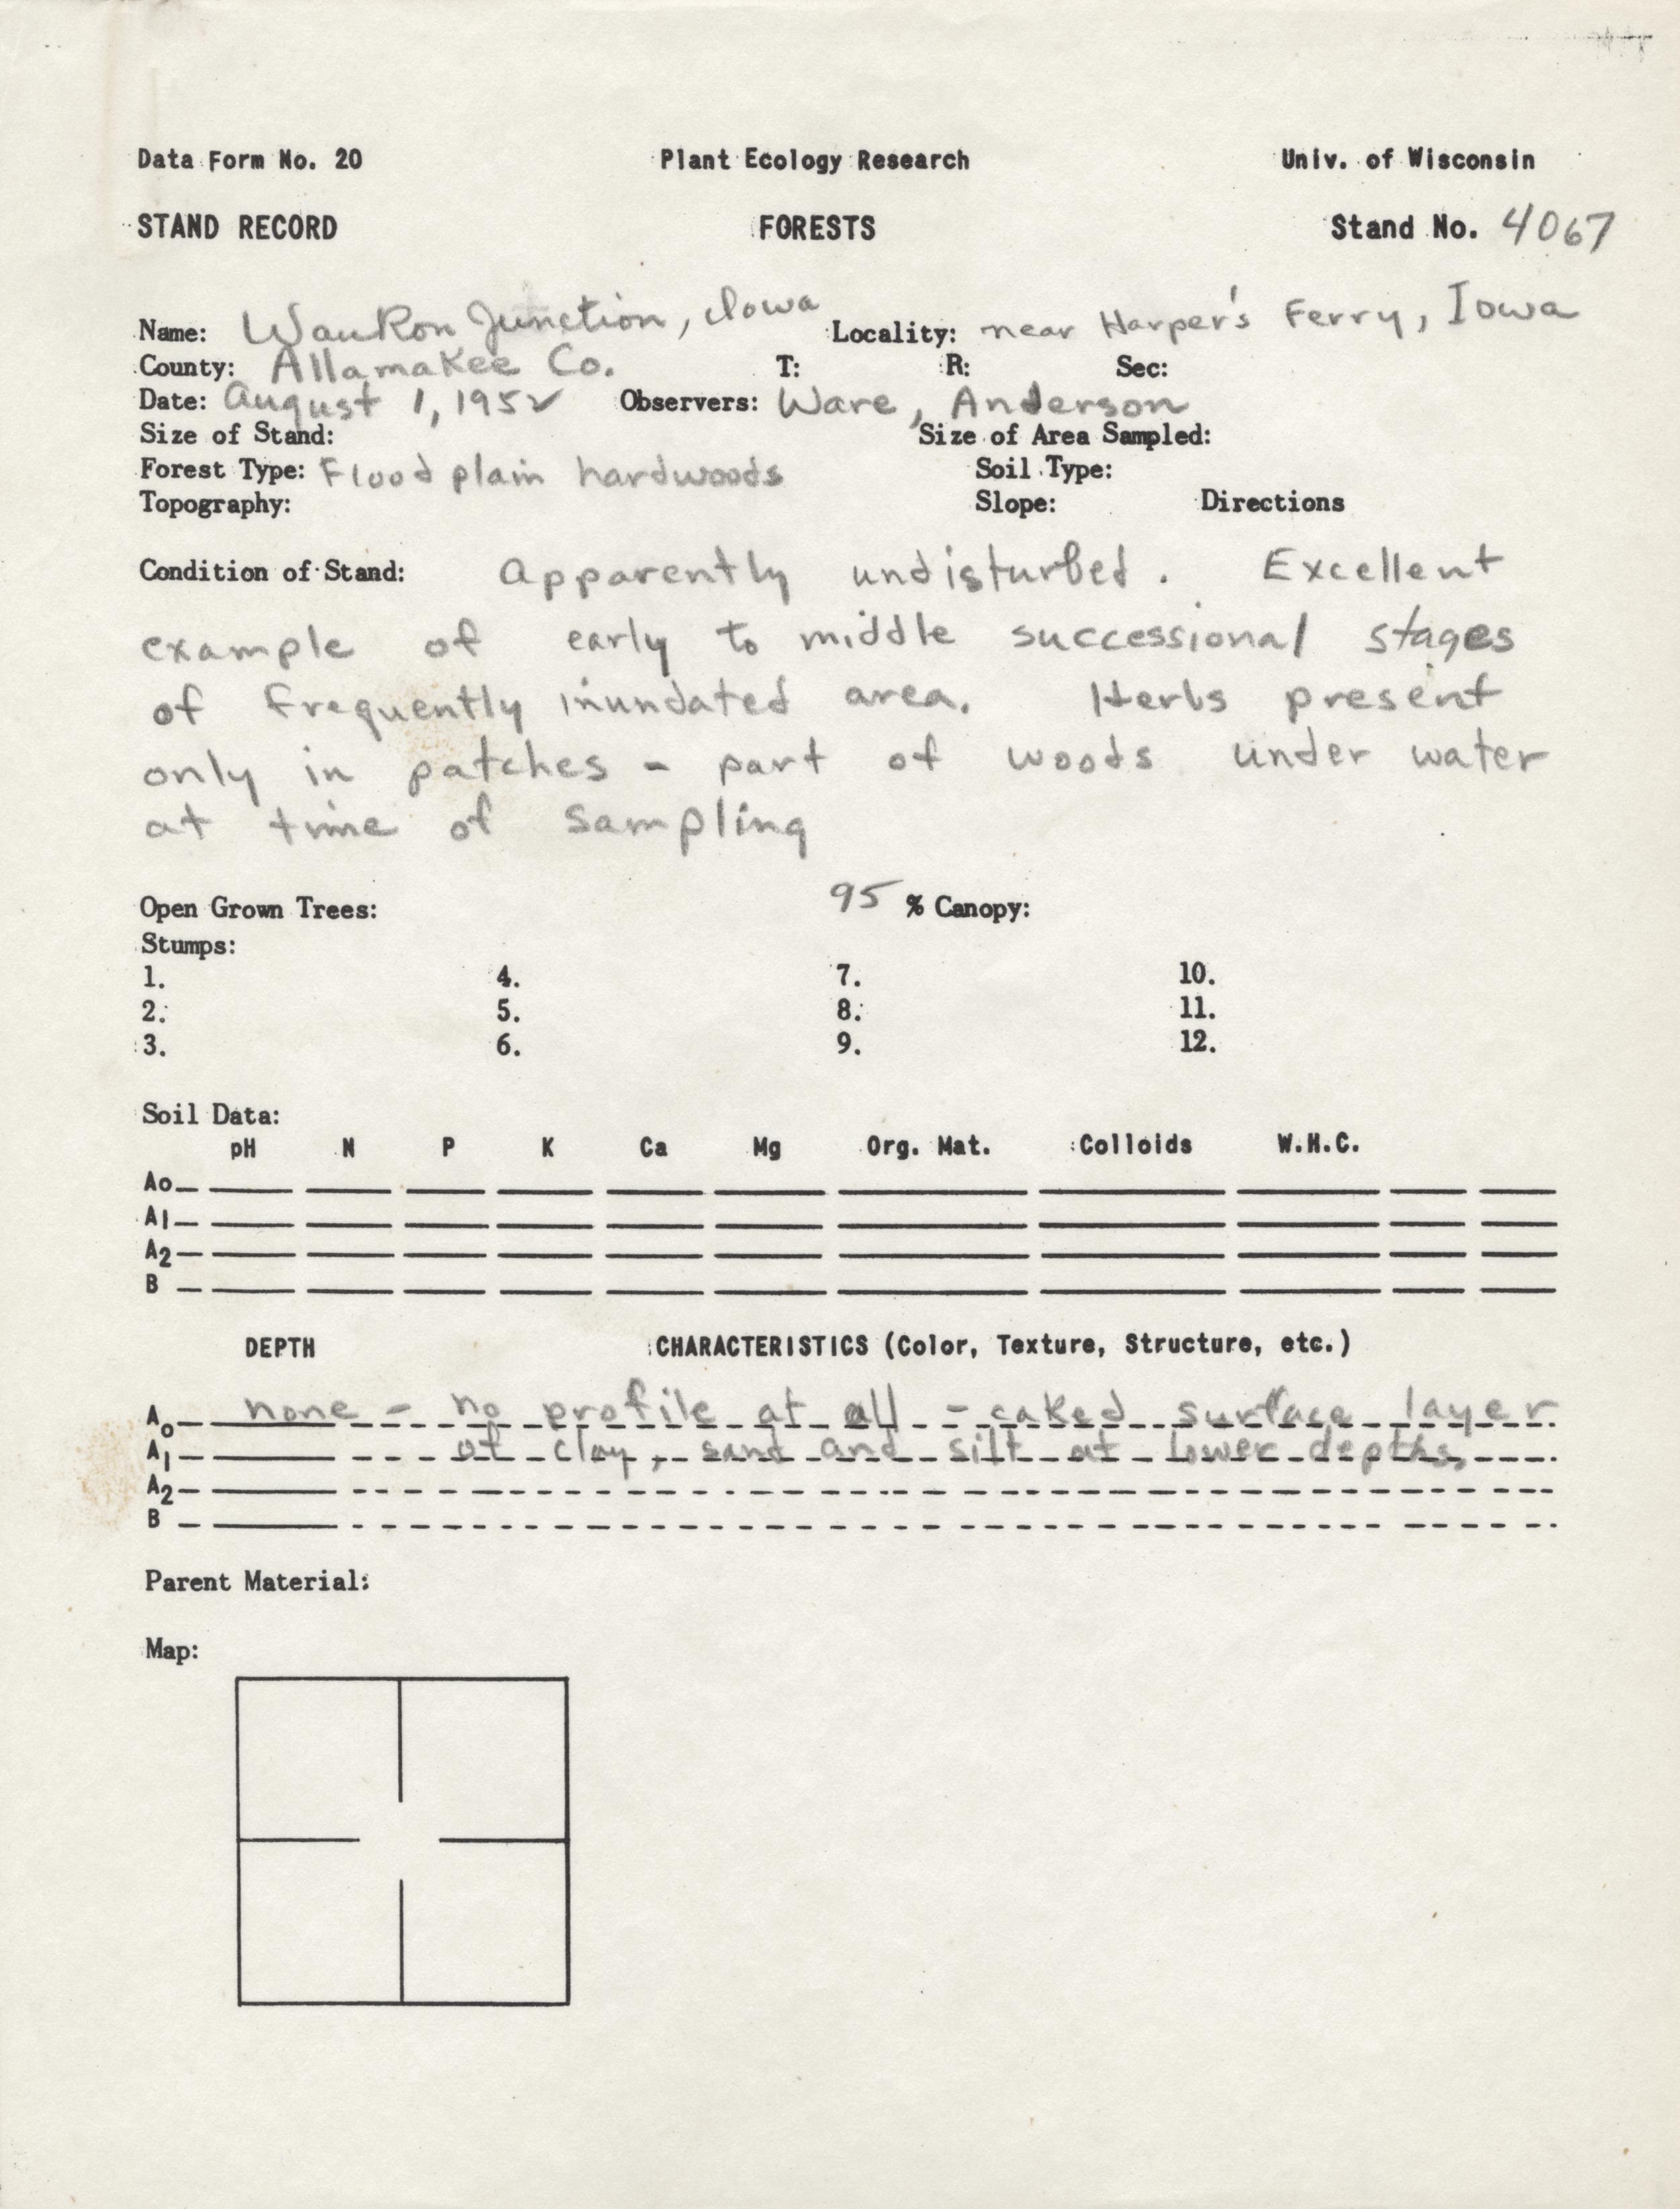 Data Form No. 20 Plant Ecology Research Univ. of Wisconsin
STAND RECORD FORESTS Stand No. 4067
Name: Waukon Junction, Iowa Locality: near Harper's Ferry, Iowa
County: Allamakee Co. T: R: Sec:
Date: August 1, 1952 Observers: Ware, Anderson
Size of Stand: Size of Area Sampled:
Forest Type: Flood plain hardwoods Soil Type:
Topography: Slope: Directions
Condition of Stand: Apparently undisturbed. Excellent
example of early to middle successional stages
of frequently inundated area. Herbs present
only in patches - part of woods under water
at time of sampling
Open Grown Trees: 95 % Canopy:
Stumps:
1. 4. 7. 10.
2. 5. 8. 11.
3. 6. 9. 12.
Soil Data:
pH N P K Ca Mg Org. Mat. Colloids W.H.C.
Ao
A1
A2
B
DEPTH CHARACTERISTICS (Color, Texture, Structure, etc.)
Ao none - no profile at all - caked surface layer
A1 of clay, sand and silt at lower depths.
A2
B
Parent Material:
Map: